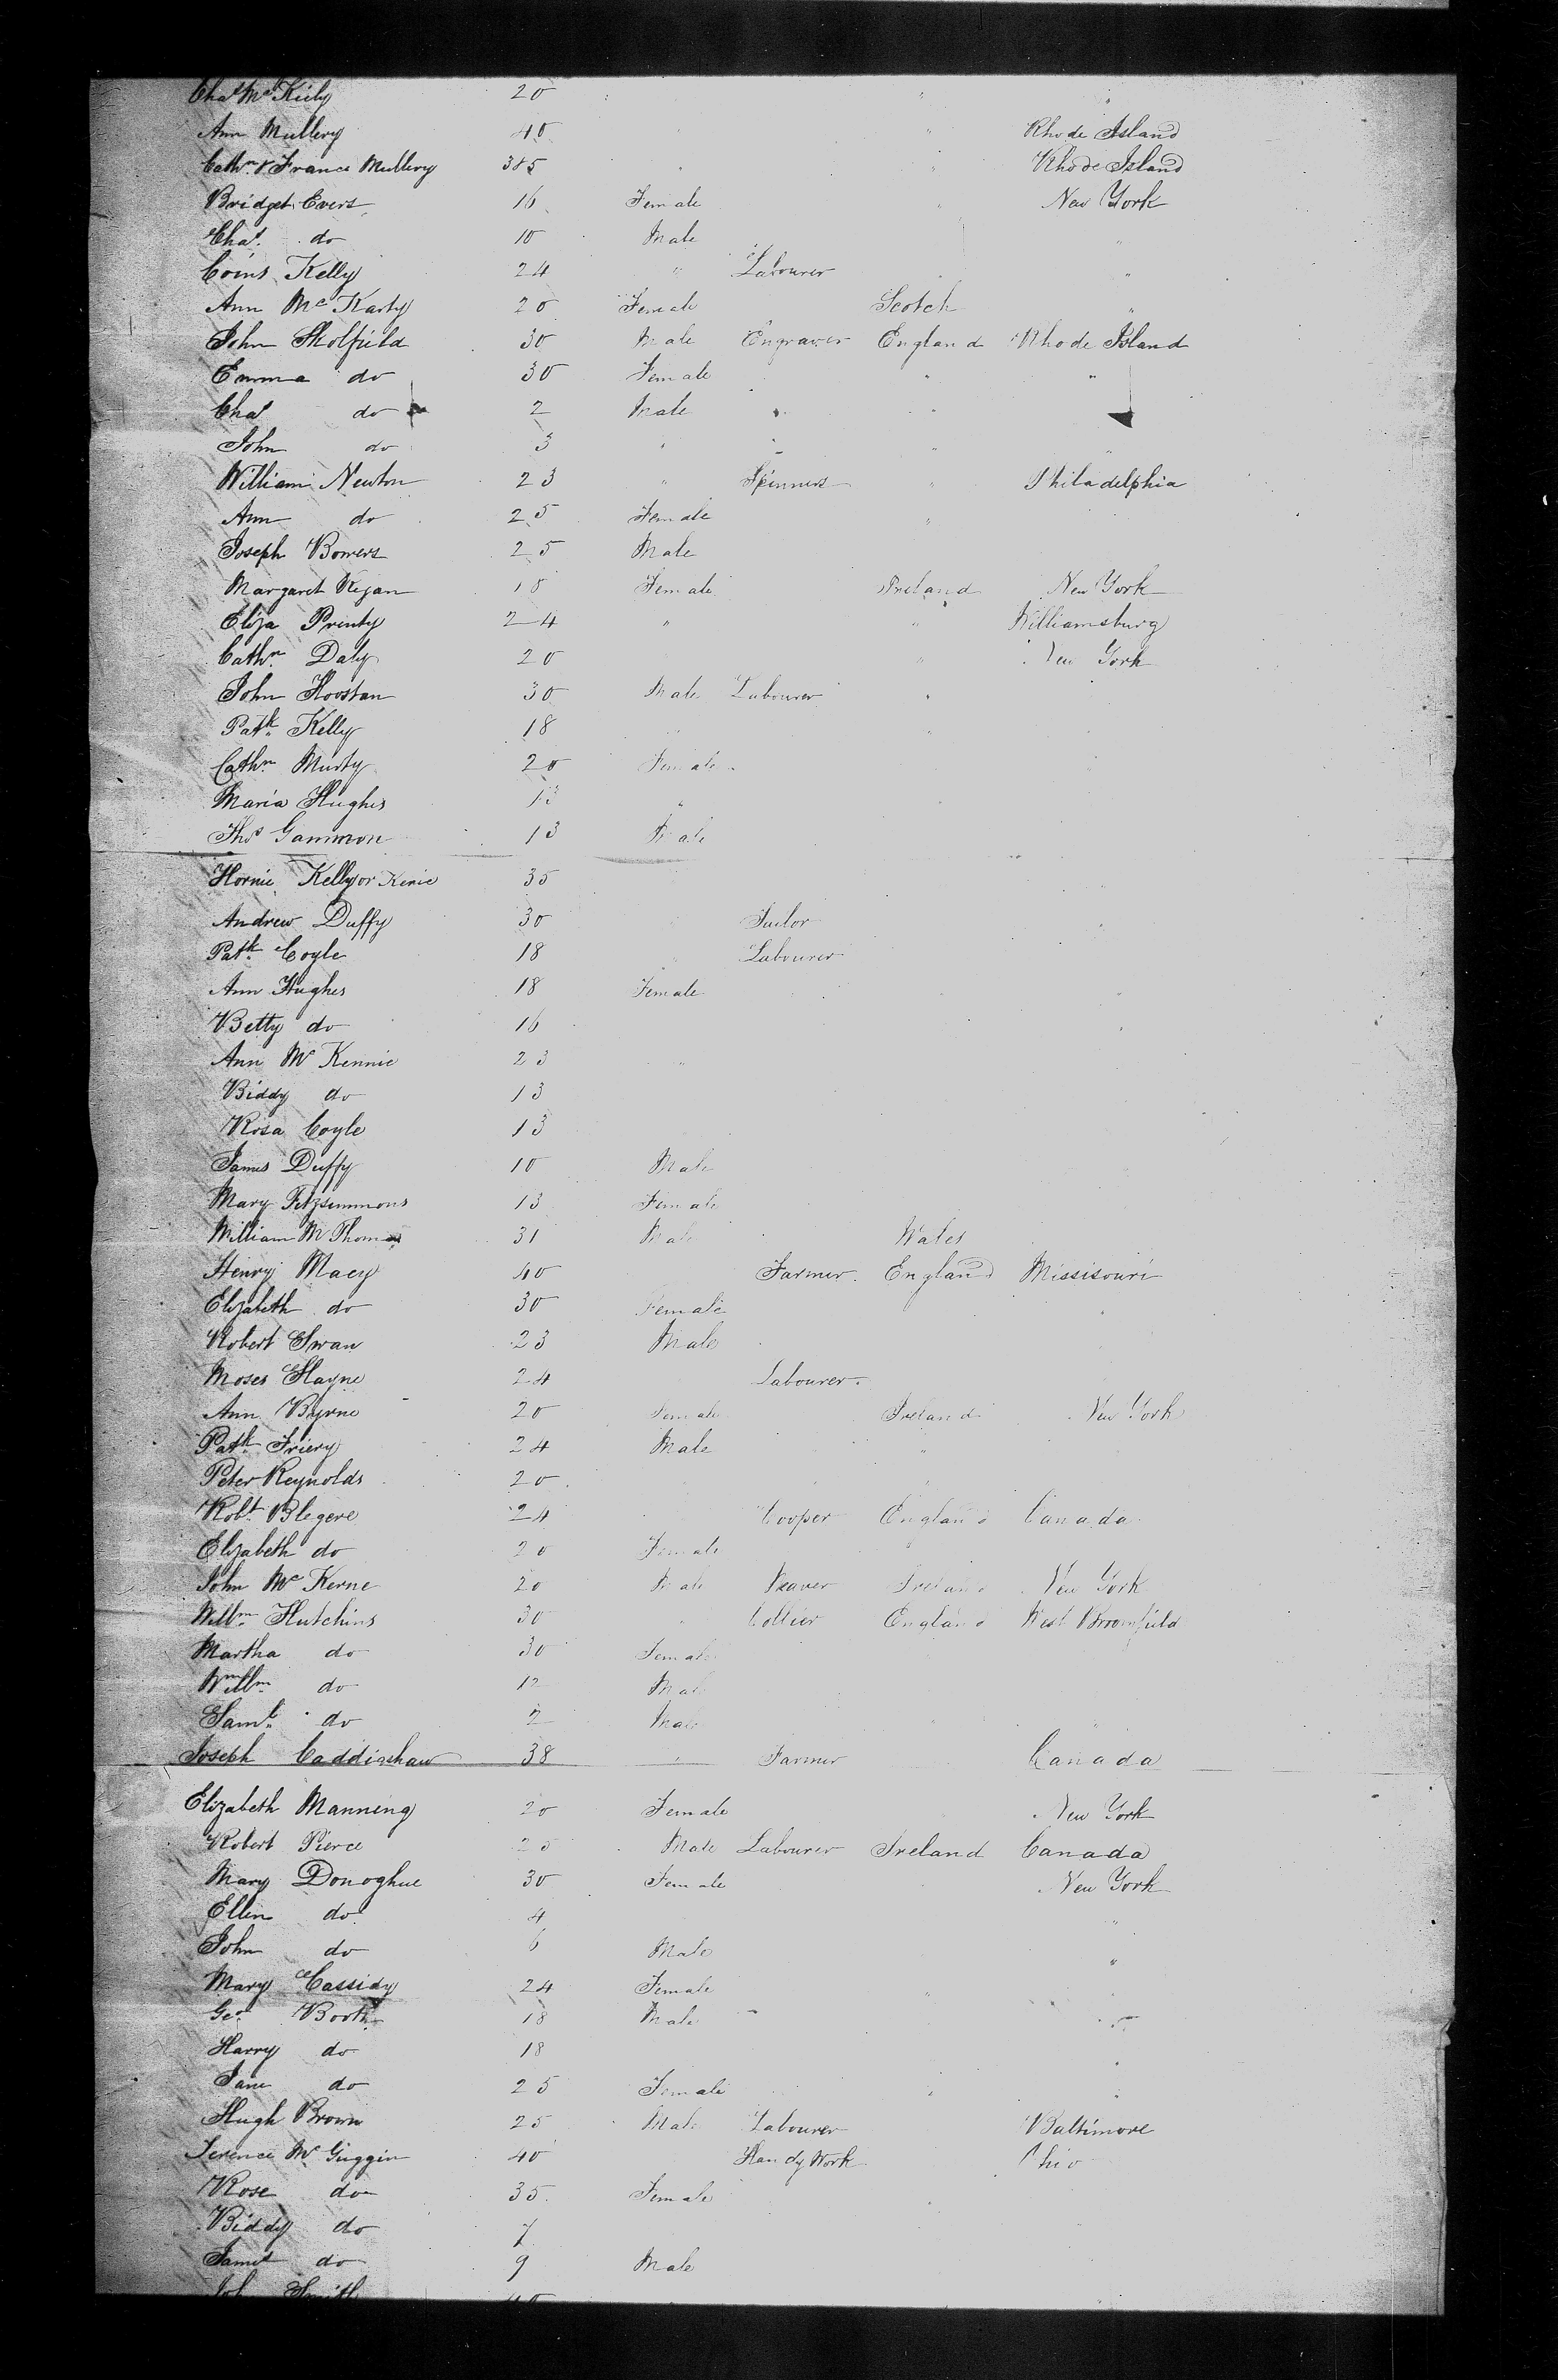 Chas McKiely 20 "
Ann Mullery 40 " Rhode Island
Cathn & France Mullery 3&5 " Rhode Island
Bridget Evers 16 Female " New York
Chas. do 10 Male "
Kelly 24 " Labourer "
Ann Mc Karty 20 Female Scotch "
John Sholfield 30 Male Engraver England Rhode Island
Emma do 30 Female " "
Chas do 2 Male "
John do 3 " " "
William Newton 23 " Spinners " Philadelphia
Ann do 25 Female "
Joseph Bowers 25 Male
Margaret Regan 18 Female Ireland New York
Eliza Printy 24 " " Williamsburg
Cathn. Daly 20 " New York
John Hoostan 30 Male Labourer "
Patk. Kelly 18 "
Cathn. Murty 20 Female
Maria Hughes 13 "
Thos Gammon 13 Male
Hornie Kelly or Kenie 35
Andrew Duffy 30 " Tailor
Patk. Coyle 18 " Labourer
Ann Hughes 18 Female
Betty do 16
Ann Mc Kennie 23 "
Biddy do 13
Rosa Coyle 13
James Duffy 10 Male
Mary Fitzsimmons 13 Female
William M Thomas 31 Male Wales
Henry Macy 40 Farmer England Missisouri
Elizabeth do 30 Female
Robert Swan 23 Male
Moses Hayne 24 Labourer
Ann Byrne 20 Female Ireland New York
Patk. Friery 24 Male "
Peter Reynolds 20
Robt. Blegere 24 Cooper England Canada
Elizabeth do 20 Female "
John Mc Kerne 20 Male Weaver Ireland New York
Willm. Hutchins 30 " Collier England West Broomfield
Martha do 30 Female
Willm. do 12 Male
Saml. do 2 Male
Joseph Caddishaw 38 " Farmer Canada
Elizabeth Manning 20 Female New York
Robert Pierce 25 Male Labourer Ireland Canada
Mary Donoghue 30 Female New York
Ellin do 4 "
John do 6 Male "
Mary Cassidy 24 Female "
Geo. Booth 18 Male
Harry do 18 "
Jane do 25 Female "
Hugh Brown 25 Male Labourer Baltimore
Terence Mc Guggin 40 Handy Work Ohio
Rose do 35 Female
Biddy do 7
James do 9 Male
John Smith 40